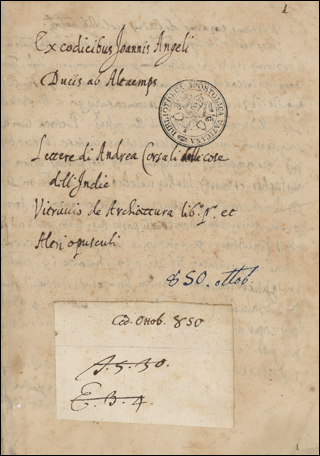 1
Ex codicibus Joannis Angeli
Ducis ab Altaemps
BIBLIOTHECA APOSTOLICA VATICANA
Lettere di Andrea Corsali delle cose
dell'Indie
Vitruvio de Architettura lib. pº. et
Altri opusculi
850. ottob
Cod. Ottob. 850
J. 5. 30.
E. B. 4.
1